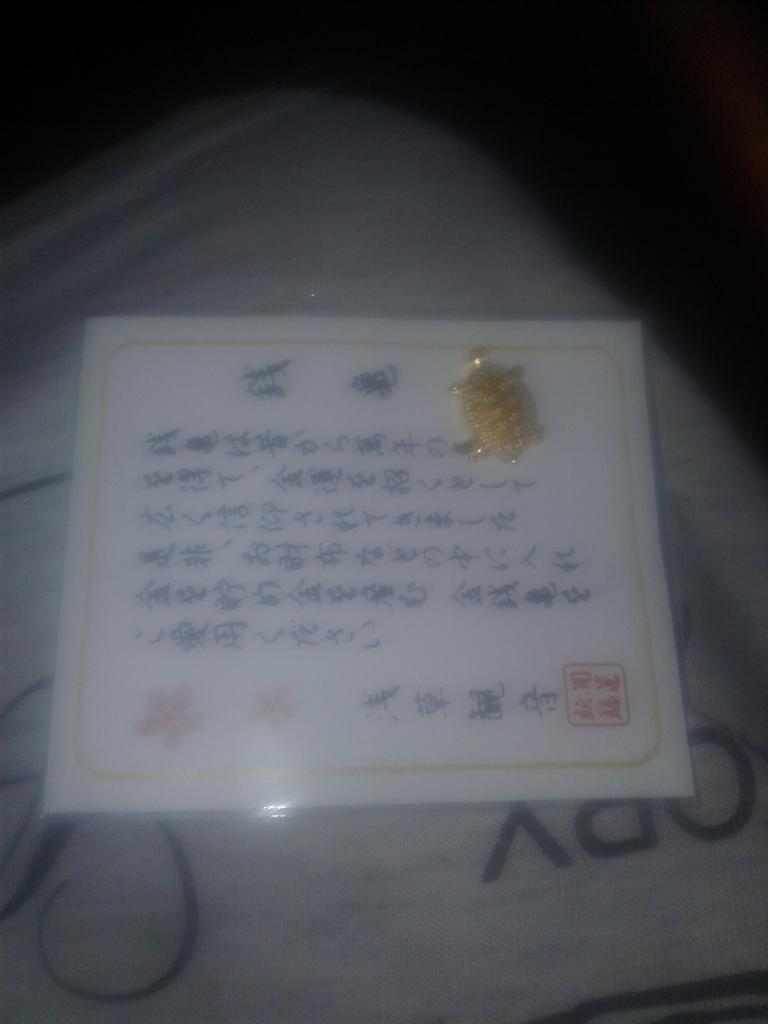 銭亀
銭亀は昔から萬年の
を得て、金運を招くとして
広く信仰されてきました
是非、お財布などの中に入れ
金を貯め金を産む 金銭亀を
ご愛用ください
浅草観音
開運
招福
OPY